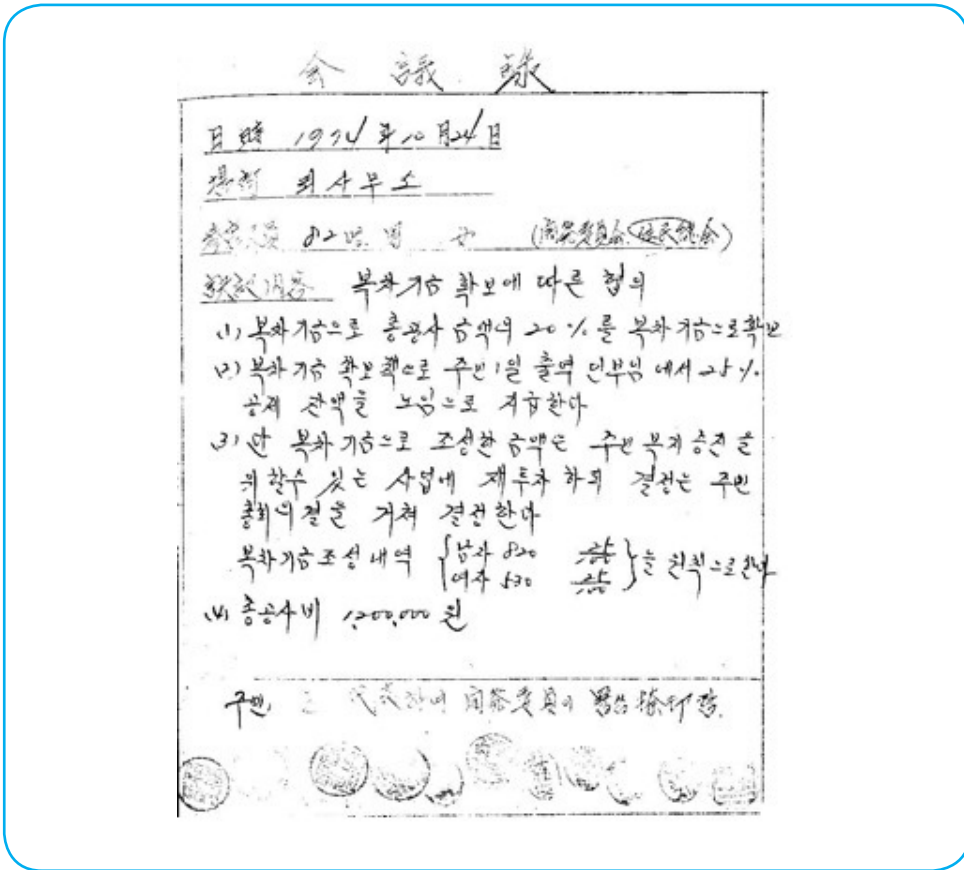 会議録
日時 1974年 10月 24日
場所 리사무소
参席人員 82명 명 (開発委員会, 住民総会)
協議内容 복차기금 확보에 따른 협의
(1) 복차기금으로 총공사 금액의 20%를 복차기금으로확보
(2) 복차기금 확보책으로 주민1일 출역 인부임에서 25%
공제 잔액을 노임으로 지급한다
(3) 단 복차기금으로 조성한 금액은 주민 복지 증진을
위할수 있는 사업에 재투자 하되 결정는 주민
총회의결을 거쳐 결정한다
복차기금조성내역 {남자 820 여자 530 }을 원칙으로한다
(4) 총공사비 1,200,000원
주민 代表하여 開発委員이 捺印함.